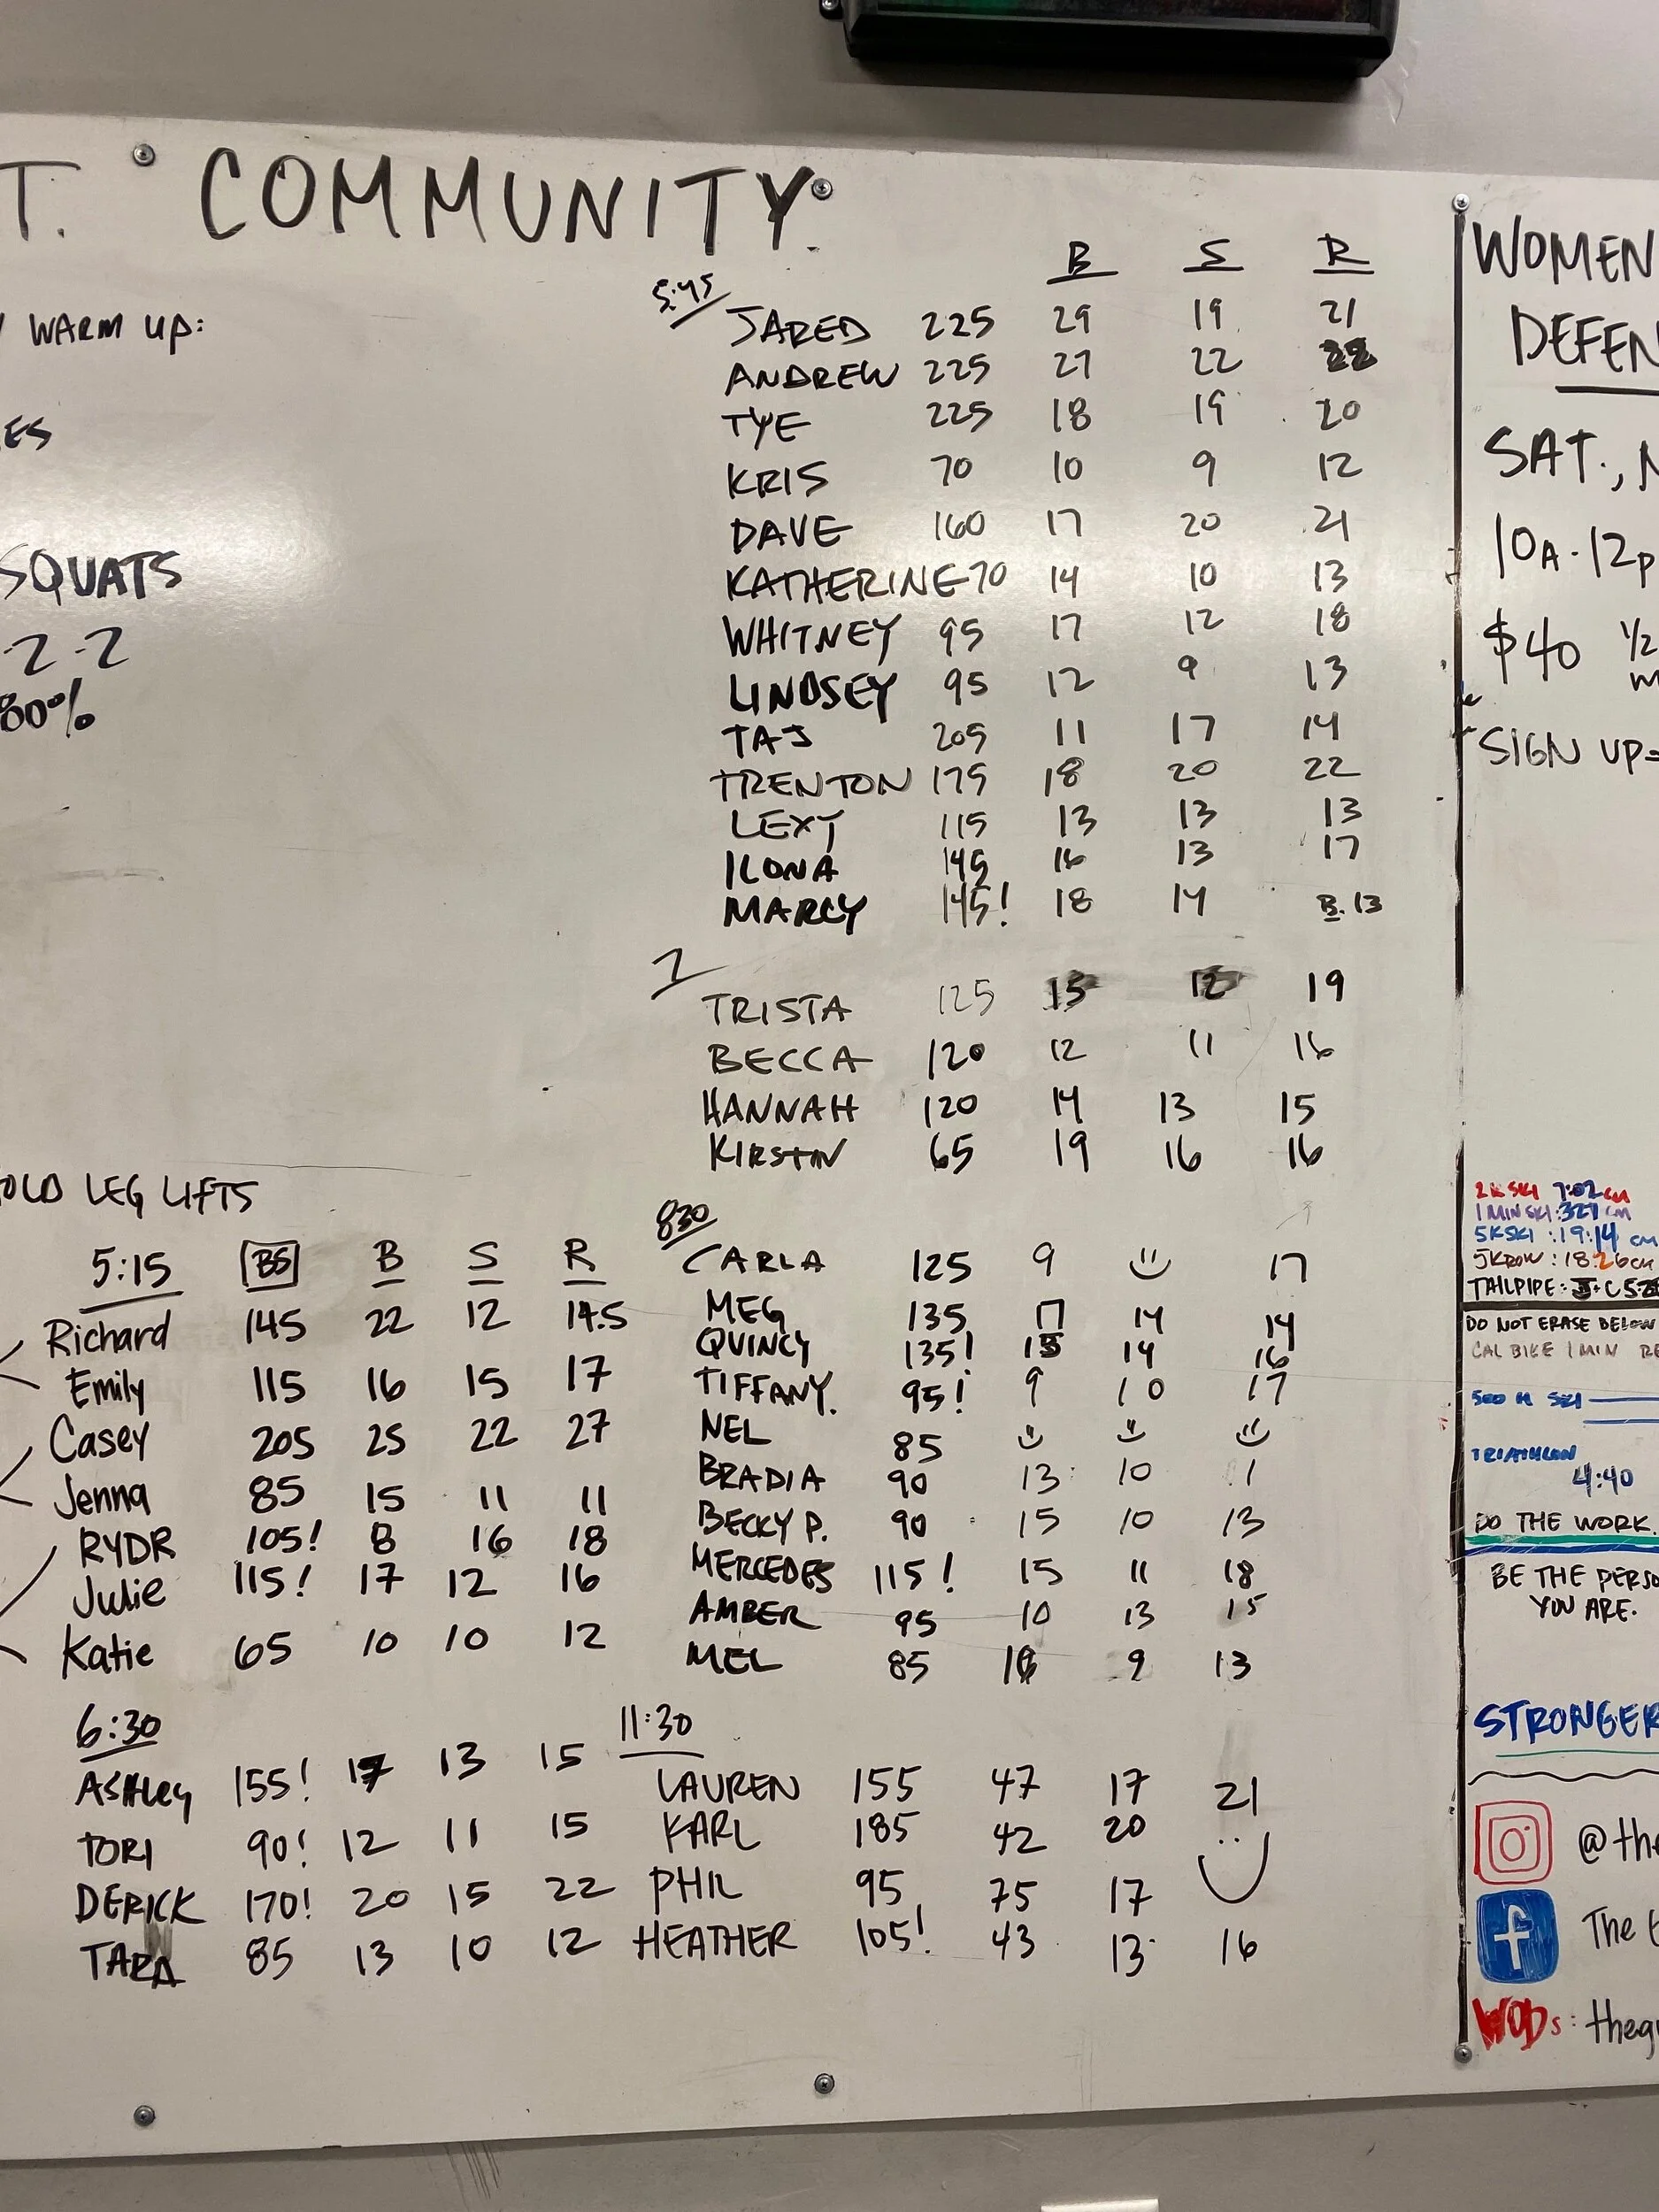 T. COMMUNITY.
WARM UP:
ES
SQUATS
-2-2
80%
OLD LEG LIFTS
5:15 BS B S R
Richard 145 22 12 14.5
Emily 115 16 15 17
Casey 205 25 22 27
Jenna 85 15 11 11
RYDR 105! 8 16 18
Julie 115! 17 12 16
Katie 65 10 10 12
6:30
ASHLEY 155! 17 13 15
TORI 90! 12 11 15
DERICK 170! 20 15 22
TARA 85 13 10 12
B S R
5:45
JARED 225 29 19 21
ANDREW 225 27 22 22
TYE 225 18 19 20
KRIS 70 10 9 12
DAVE 160 17 20 21
KATHERINE 70 14 10 13
WHITNEY 95 17 12 18
LINDSEY 95 12 9 13
TAJ 205 11 17 14
TRENTON 175 18 20 22
LEXY 115 13 13 13
ILONA 145 16 13 17
MARCY 145! 18 14 B. 13
7
TRISTA 125 13 12 19
BECCA 120 12 11 16
HANNAH 120 14 13 15
KIRSTIN 65 19 16 16
830
CARLA 125 9 17
MEG 135 17 14 14
QUINCY 135! 14 16
TIFFANY. 95! 9 10 17
NEL 85
BRADIA 90 13 10 1
BECKY P. 90 15 10 13
MERCEDES 115! 15 11 18
AMBER 95 10 13 15
MEL 85 9 13
11:30
LAUREN 155 47 17 21
KARL 185 42 20
PHIL 95 75 17
HEATHER 105! 43 13 16
WOMEN
DEFEN
SAT.,
10A-12P
$40 1/2
SIGN UP=
2K SKI 7:02 CM
1 MIN SKI: 327 CM
5K SKI: 19:14 CM
5K ROW: 18:26 CM
TAILPIPE:
DO NOT ERASE BELOW
CAL BIKE 1 MIN RE
500 M SKI
TRIATHLON
4:40
DO THE WORK.
BE THE PERSO
YOU ARE.
STRONGER
@the
f The
WODs: theg